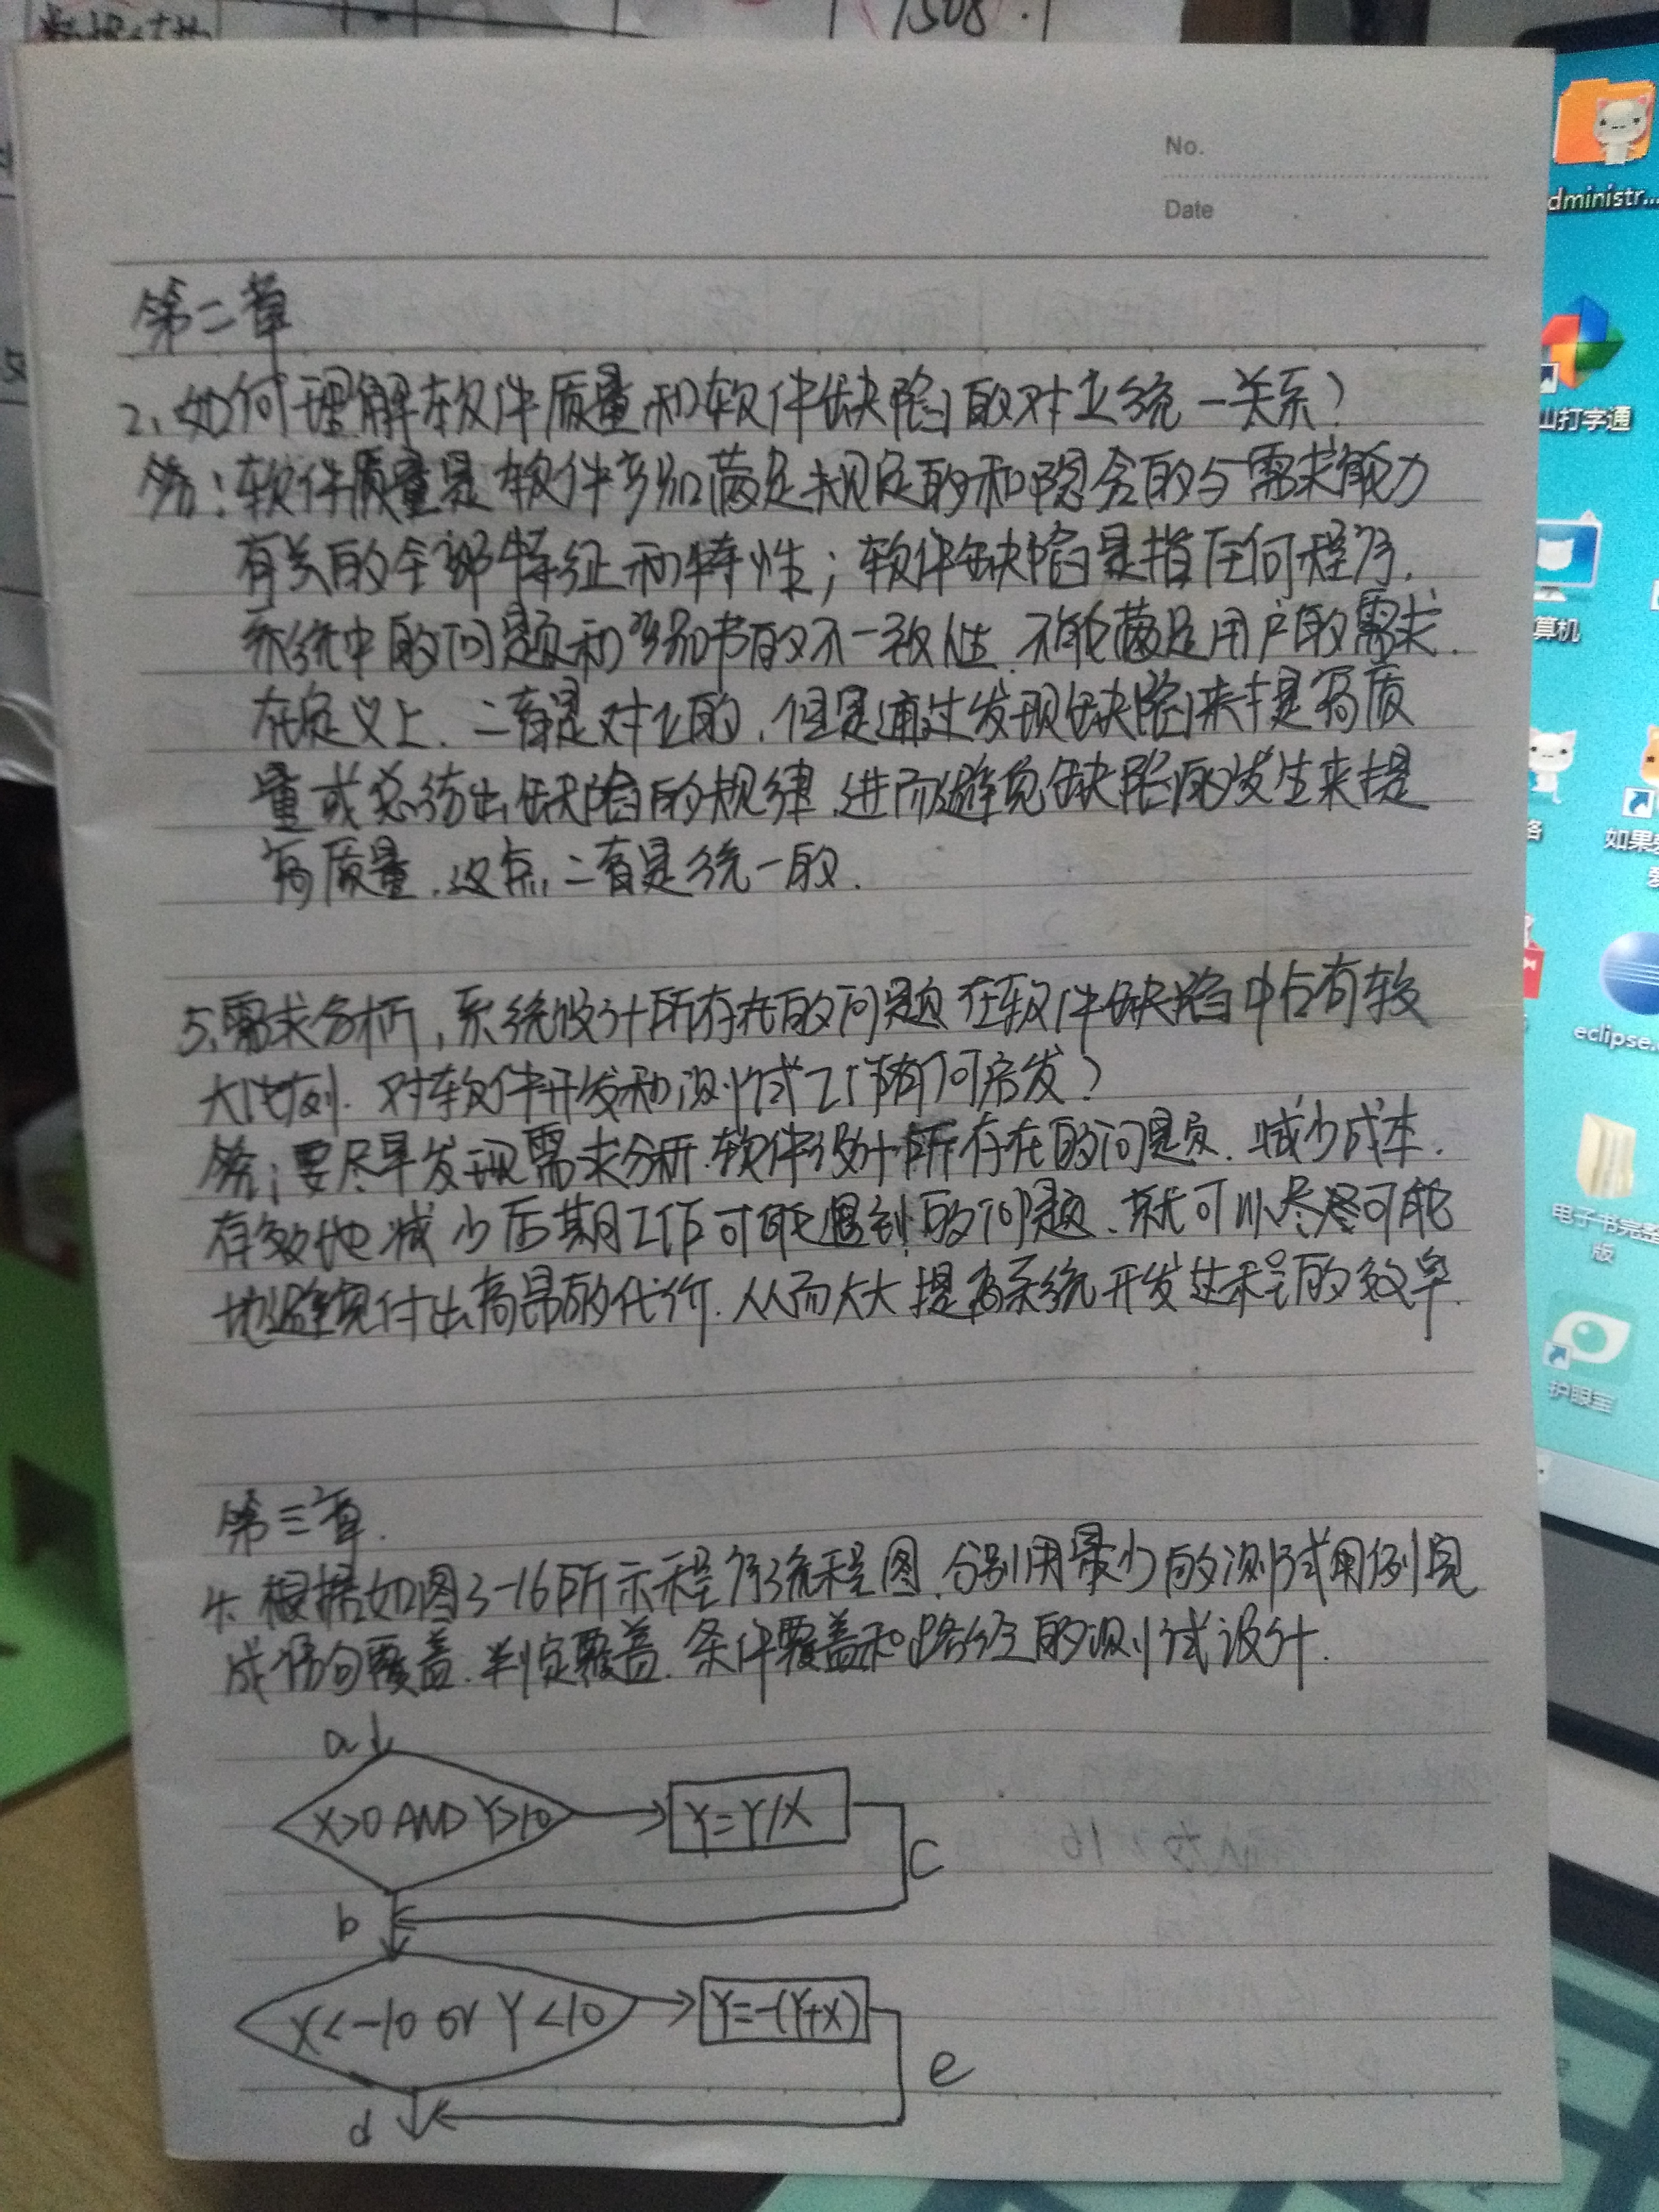 1508.1
No.
Date
第二章
2、如何理解软件质量和软件缺陷的对立统一关系?
答:软件质量是软件产品满足规定的和隐含的与需求能力
有关的全部特征和特性;软件缺陷是指任何程序、
系统中的问题和产品书的不一致性、不能满足用户的需求.
在定义上、二者是对立的,但是通过发现缺陷来提高质
量或总结出缺陷的规律、进而避免缺陷的发生来提
高质量、这点二者是统一的.
5、需求分析,系统设计所存在的问题在软件缺陷中占有较
大比例、对软件开发和测试工作有何启发?
答:要尽早发现需求分析、软件设计所存在的问题、减少成本.
有效地减少后期工作可能遇到的问题、就可以尽可能
地避免付出高昂的代价、从而大大提高系统开发过程的效率.
第三章.
4、根据如图3-16所示程序流程图、分别用最少的测试用例完
成语句覆盖、判定覆盖、条件覆盖和路径的测试设计.
a
X>0 AND Y>10
Y=Y/X
c
b
X<-10 or Y<10
Y=-(Y+X)
e
d
dministr...
山打字通
算机
络
如果
爱
eclipse.
电子书完整
版
护眼宝